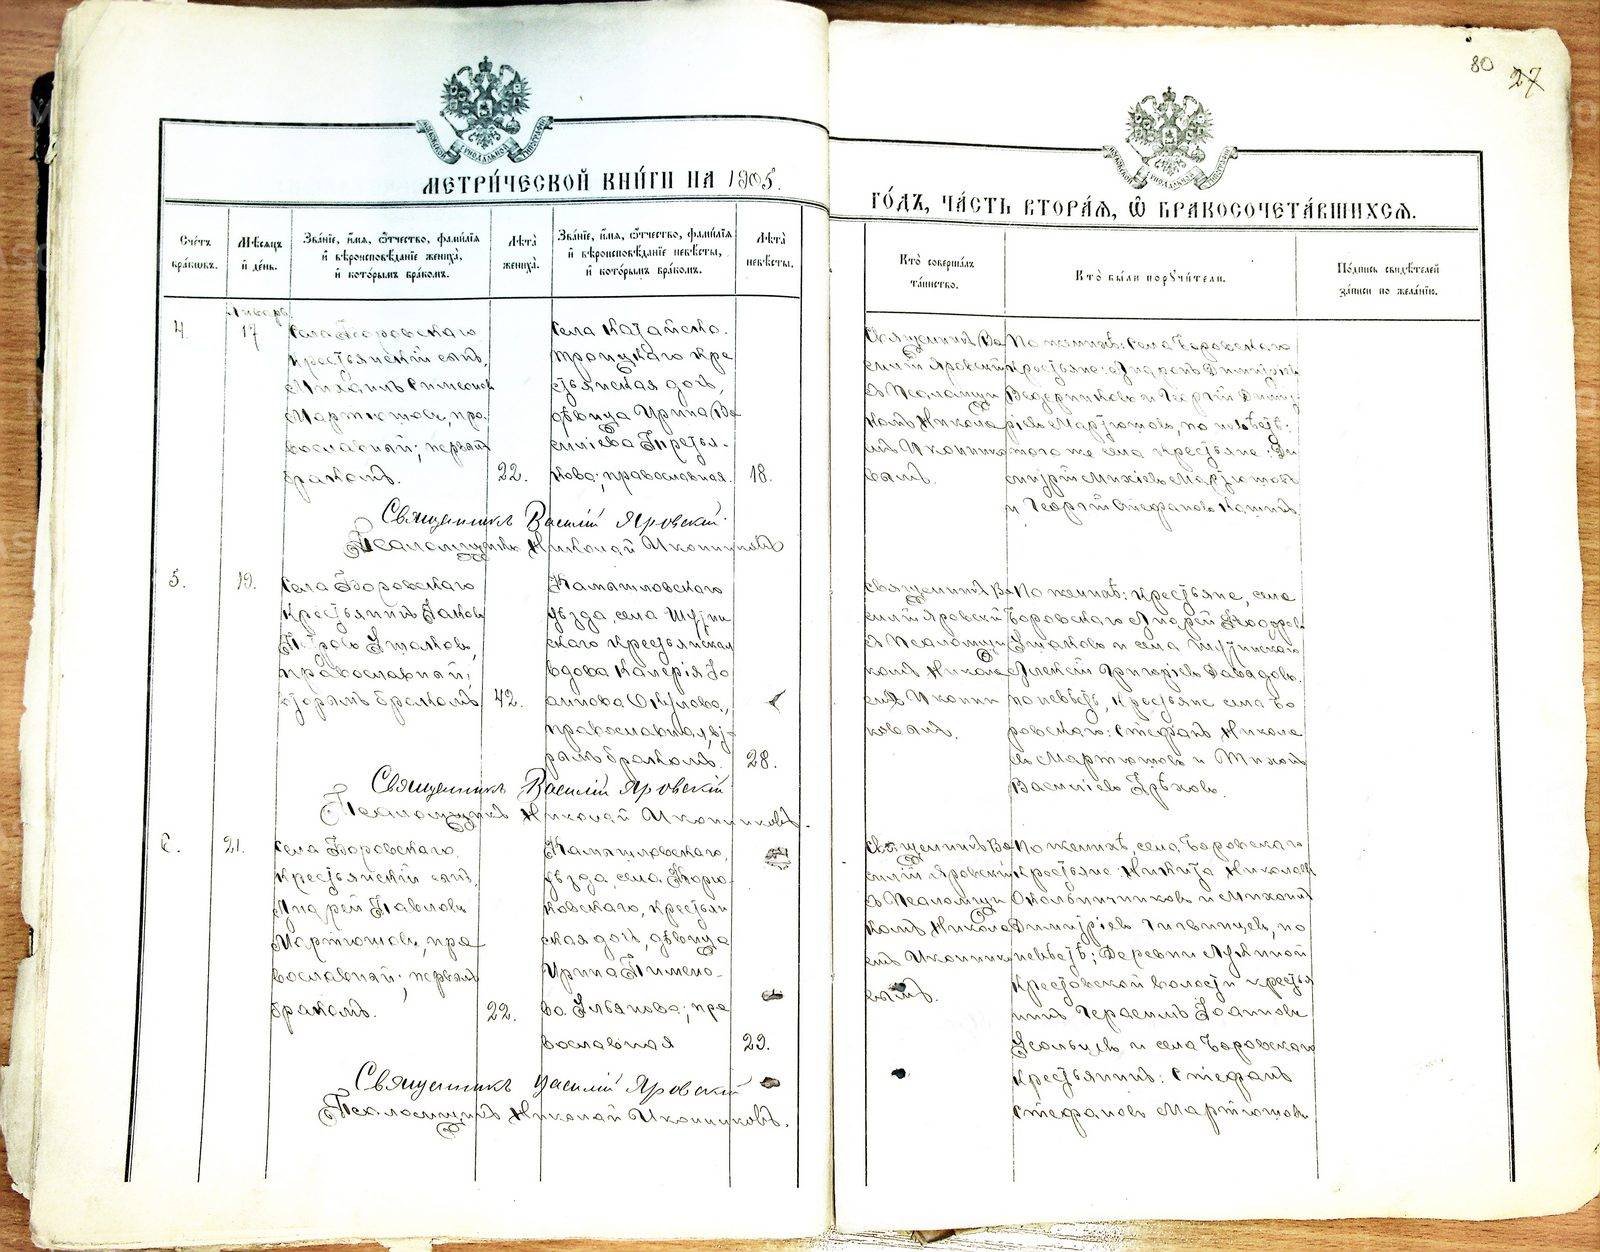 80 27
МЕТРИ́ЧЕСКОЙ КНИ́ГИ НА 1905.
ГО́ДЪ, ЧА́СТЬ ВТОРА́Я, Ѡ БРАКОСОЧЕТА́ВШИХСЯ.
Сче́тъ бра́ковъ.
Мѣ́сяцъ и де́нь.
Зва́нїе, и́мя, ѻ́тчество, фами́лїя
и вѣроисповѣ́данїе жениха̀,
и кото́рымъ бра́комъ.
Лѣ́та жениха̀.
Зва́нїе, и́мя, ѻ́тчество, фами́лїя
и вѣроисповѣ́данїе невѣ́сты,
и кото́рымъ бра́комъ.
Лѣ́та невѣ́сты.
Кто̀ соверша́лъ
та́инство.
Кто̀ бы́ли поручи́тели.
По́дпись свидѣ́телей
за́писи по жела́нїю.
Январь
4. 17
Села Боровскаго
крестьянскій сынъ,
Михаилъ Симеоновъ
Мартюшовъ, пра-
вославный; первымъ
бракомъ.
22.
Села Катайско-
Троицкаго кре
стьянская дочь,
дѣвица Ирина Ва
силіева Третья-
кова; православная.
18.
Священникъ Ва
силій Яровскій
съ Псаломщи
комъ Никола
емъ Иконнико
вымъ.
По женихѣ: села Боровскаго
крестьяне: Андрей Димитріевъ
Ведерниковъ и Георгій Димит-
ріевъ Мартюшовъ, по невѣстѣ:
того же села крестьяне: Ди
митрій Михѣевъ Мартюшовъ
и Георгій Стефановъ
Священникъ Василій Яровскій.
Псаломщикъ Николай Иконниковъ
5. 19.
Села Боровскаго
крестьянинъ Іаковъ
Петровъ Ушаковъ,
православный,
вторымъ бракомъ
42.
Камышловскаго
уѣзда, села Шутин
скаго крестьянская
вдова Калерія Іо
аннова Окулова,
православная, вто-
рымъ бракомъ.
28.
Священникъ Ва
силій Яровскій
съ Псаломщи
комъ Никола
емъ Иконни
ковымъ.
По женихѣ: крестьяне, села
Боровскаго Андрей Ѳеодоровъ
Ушаковъ и села Шутинскаго
Алексій Григоріевъ Давыдовъ.
по невѣстѣ, крестьяне села Бо
ровскаго: Стефанъ Никола
евъ Мартюшовъ и Тихонъ
Василіевъ
Священникъ Василій Яровскій
Псаломщикъ Николай Иконниковъ.
6. 21.
Села Боровскаго,
крестьянскій сынъ,
Андрей Павловъ
Мартюшовъ, пра
вославный; первымъ
бракомъ.
22.
Камышловскаго,
уѣзда, села
ковскаго, крестьян
ская дочь, дѣвица
Ирина Пимено-
ва Ульянова; пра
вославная
23.
Священникъ Ва
силій Яровскій
съ Псаломщи
комъ Никола
емъ Иконнико
вымъ.
По женихѣ, села Боровскаго
крестьяне: Никита Николаевъ
Окольничниковъ и Михаилъ
Димитріевъ Гнѣвищевъ, по
невѣстѣ; Деревни Лужиной
Крестовской волости крестья
нинъ Герасимъ Іоанновъ
Усольцевъ и села Боровскаго
крестьянинъ: Стефанъ
Стефановъ Мартюшовъ
Священникъ Василій Яровскій
Псаломщикъ Николай Иконниковъ.